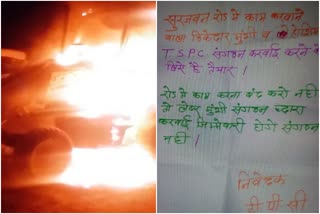 सुरजवन रोड मे काम करवाने
वाला ठिकेदार मुंशी व
T.S.P.C संगठन करवाई करने के
लिये है तैयार !
रोड मे काम करना बंद करो नही
तो ठेकेदार मुंशी संगठन द्वारा
करवाई जिम्मेवारी होगे संगठन
नही !
निवेदक
टी. पी. सी